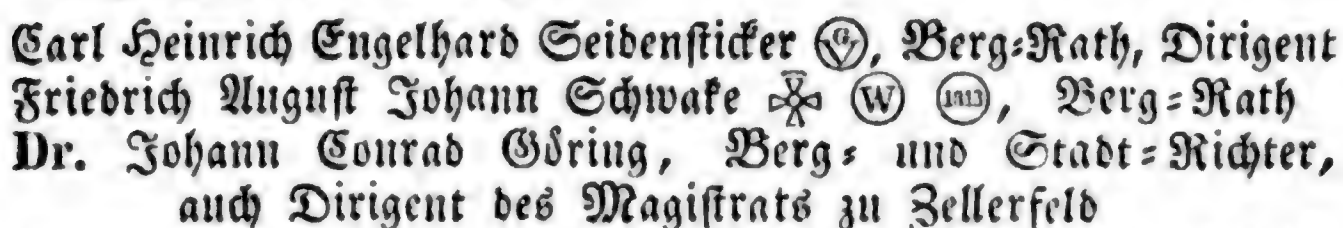 Carl Heinrich Engelhard Seidensticker, Berg-Rath, Dirigent
Friedrich August Johann Schwake W 1813, Berg-Rath
Dr. Johann Conrad Göring, Berg- und Stadt-Richter,
auch Dirigent des Magistrats zu Zellerfeld